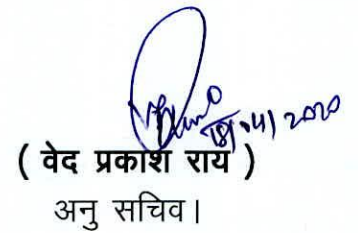 18/04/2020
( वेद प्रकाश राय )
अनु सचिव।